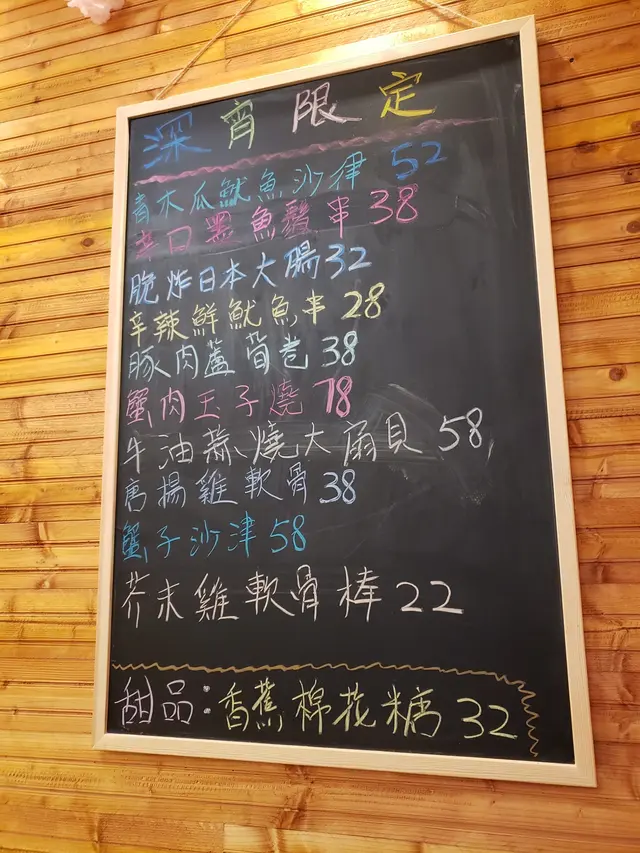 深宵限定
青木瓜魷魚沙律 52
辛口墨魚鬚串 38
脆炸日本大腸 32
辛辣鮮魷魚串 28
豚肉蘆荀卷 38
蟹肉玉子燒 78
牛油蒜燒大扇貝 58
唐揚雞軟骨 38
蟹子沙津 58
芥末雞軟骨棒 22
甜品:香蕉棉花糖 32